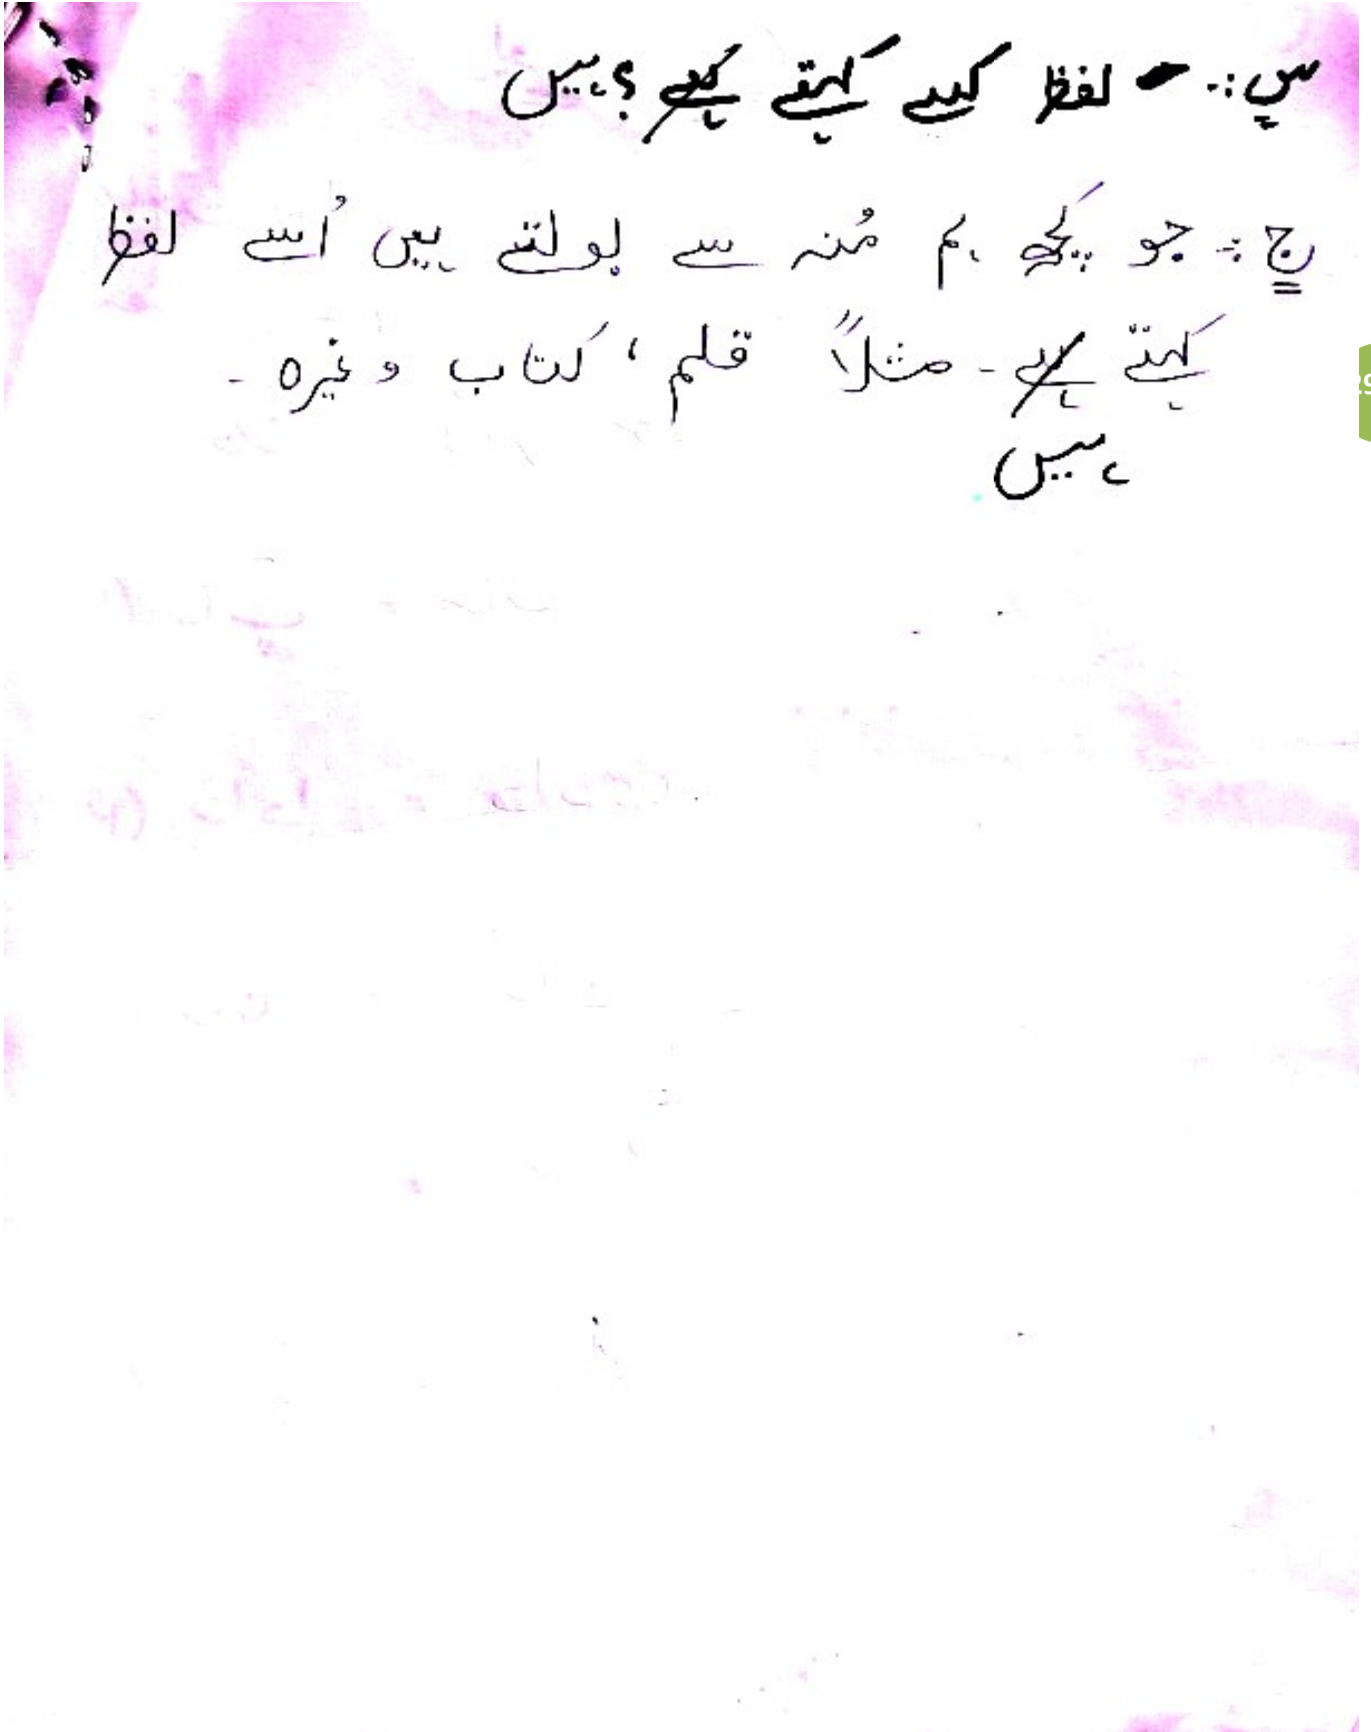 س:۔ لفظ کسے کہتے ہے؟ ہیں
ج:۔ جو کچھ ہم مُنہ سے بولتے ہیں اُسے لفظ
کہتے ہے۔ مثلاً قلم، کتاب وغیرہ۔
ہیں